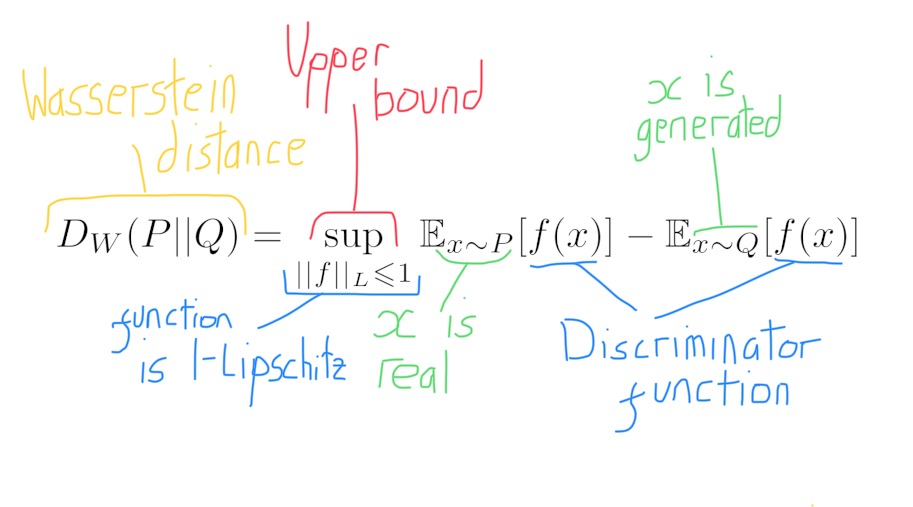 Upper
bound
Wasserstein
distance
x is
generated
D_W(P||Q) = sup_{||f||_L⩽1} 𝔼_{x∼P}[f(x)] − 𝔼_{x∼Q}[f(x)]
function
is 1-Lipschitz
x is
real
Discriminator
function